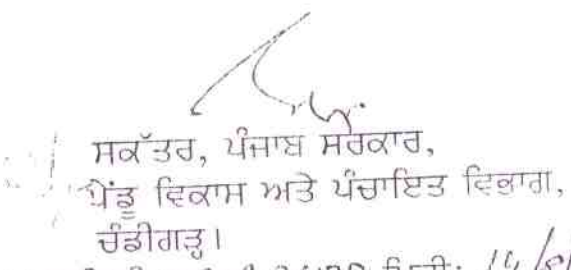 ਸਕੱਤਰ, ਪੰਜਾਬ ਸਰਕਾਰ,
ਪੇਂਡੂ ਵਿਕਾਸ ਅਤੇ ਪੰਚਾਇਤ ਵਿਭਾਗ,
ਚੰਡੀਗੜ੍ਹ।